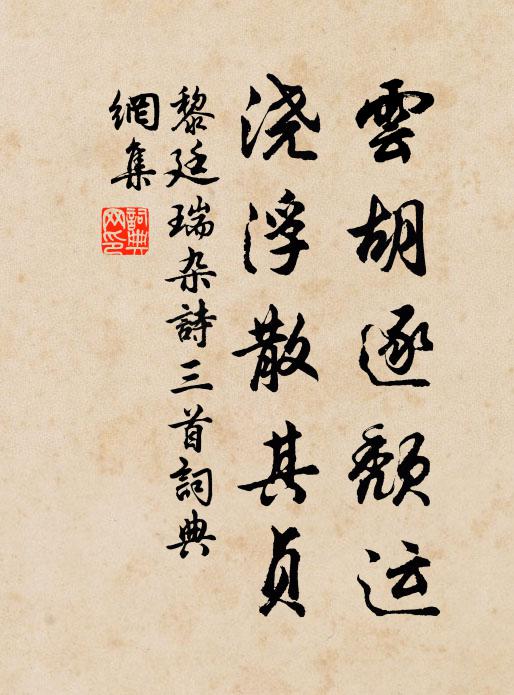 雲胡逐颓运
浇浮散其贞
黎廷瑞杂詩三首詞典
網集
詞典网印